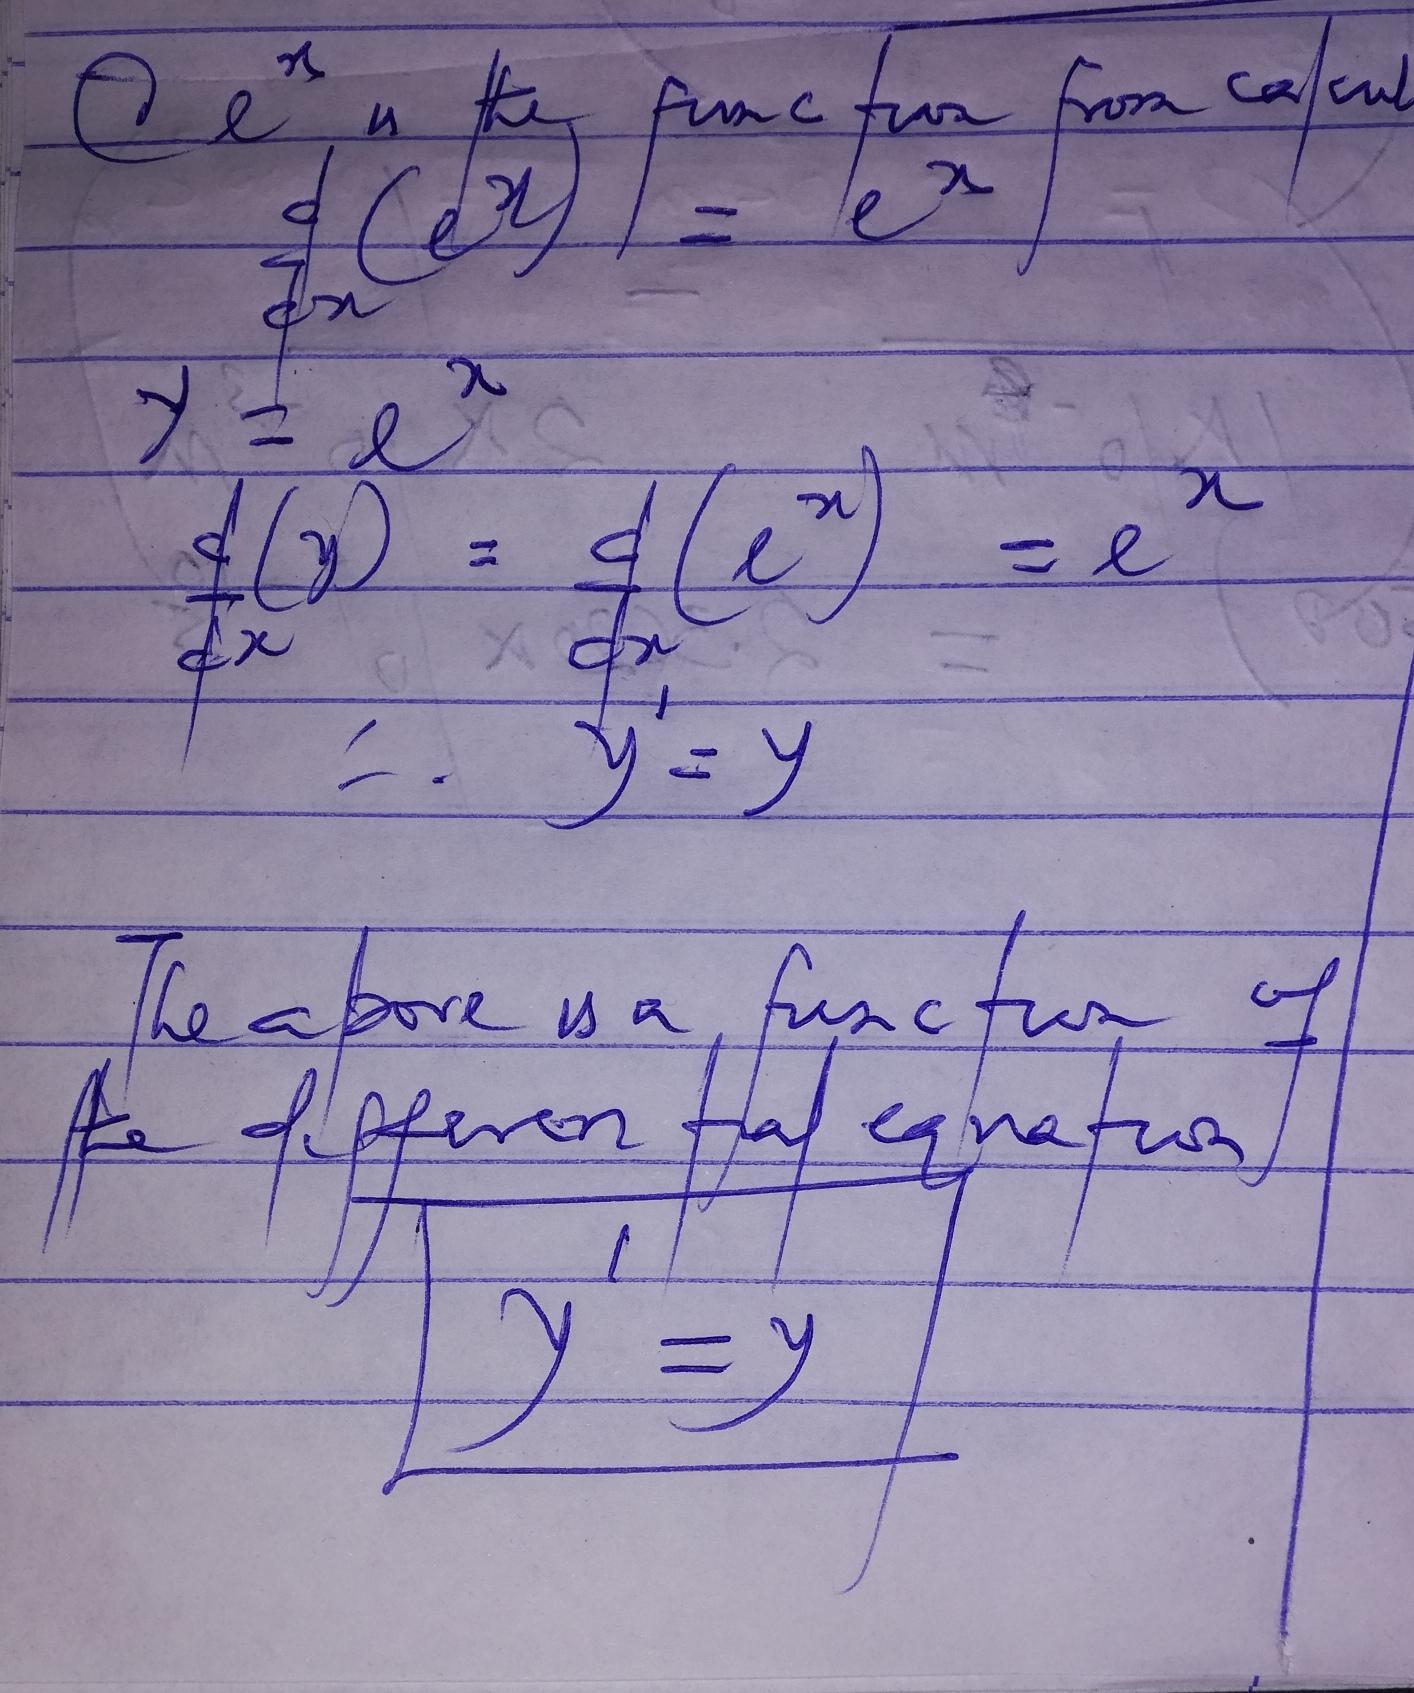 e^x is the function from calcul
d/dx (e^x) = e^x
y = e^x
d/dx (y) = d/dx (e^x) = e^x
∴ y' = y
The above is a function of
the differential equation
y' = y